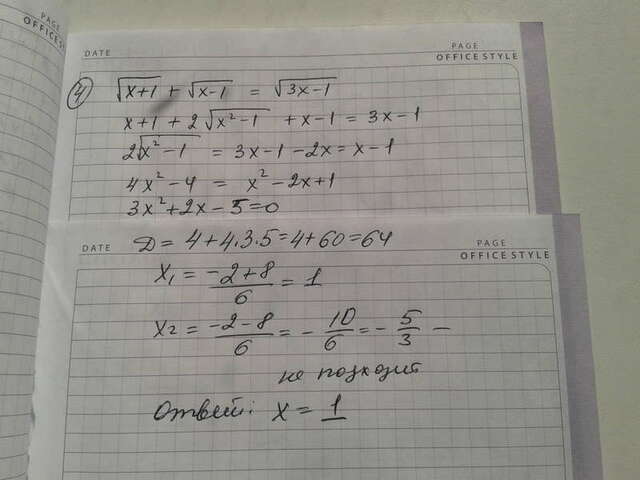 PAGE
OFFICE STYLE
DATE
PAGE
OFFICE STYLE
4) √(x+1) + √(x-1) = √(3x-1)
x+1 + 2√(x²-1) + x-1 = 3x-1
2√(x²-1) = 3x-1-2x = x-1
4x²-4 = x²-2x+1
3x²+2x-5=0
DATE
PAGE
OFFICE STYLE
D = 4+4·3·5=4+60=64
x₁ = (-2+8)/6 = 1
x₂ = (-2-8)/6 = -10/6 = -5/3 —
не подходит
Ответ: x = 1